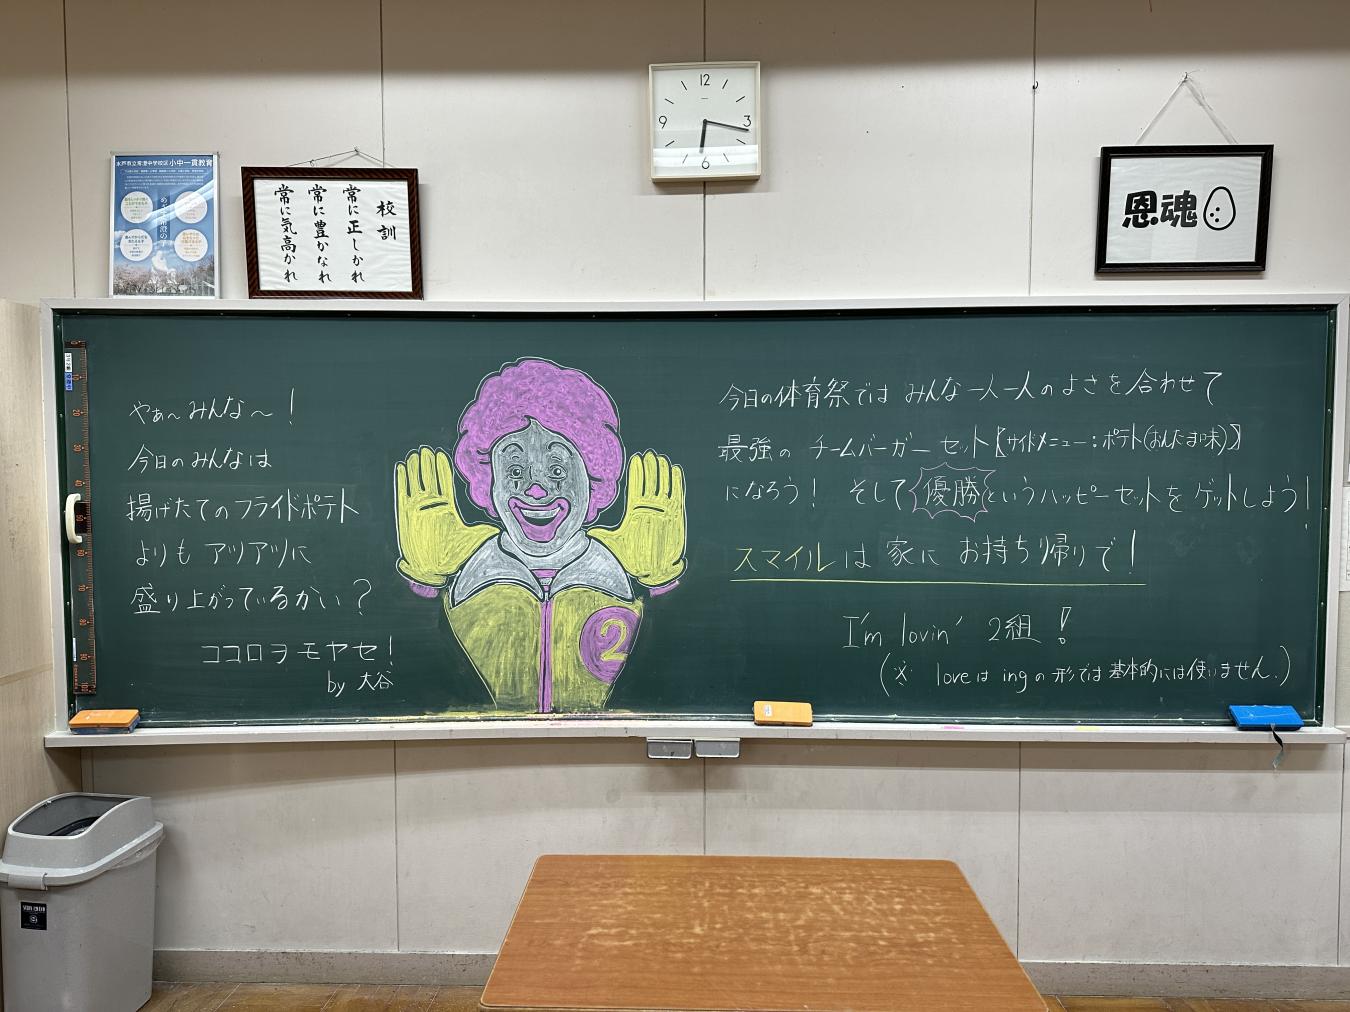 水戸市立常澄中学校区 小中一貫教育
校訓
常に正しかれ
常に豊かなれ
常に気高かれ
12
3
6
9
恩魂
やぁ〜みんな〜!
今日のみんなは
揚げたてのフライドポテト
よりもアツアツに
盛り上がっているかい?
ココロヲモヤセ!
by 大谷
2
今日の体育祭では みんな一人一人のよさを合わせて
最強の チームバーガーセット【サイドメニュー:ポテト(おんたま味)】
になろう! そして優勝というハッピーセットをゲットしよう!
スマイルは家にお持ち帰りで!
I'm lovin' 2組!
(※ loveはingの形では基本的には使いません.)